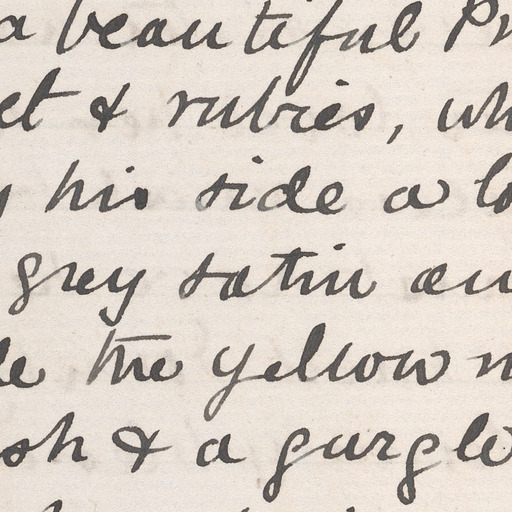 a beautiful Pr
et & rubies, wh
y his side a lo
grey satin an
le the yellow m
sh & a gurgle